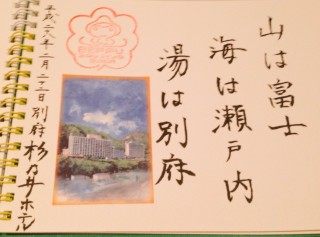 山は富士
海は瀬戸内
湯は別府
平成二八年二月二十二日別府杉乃井ホテル